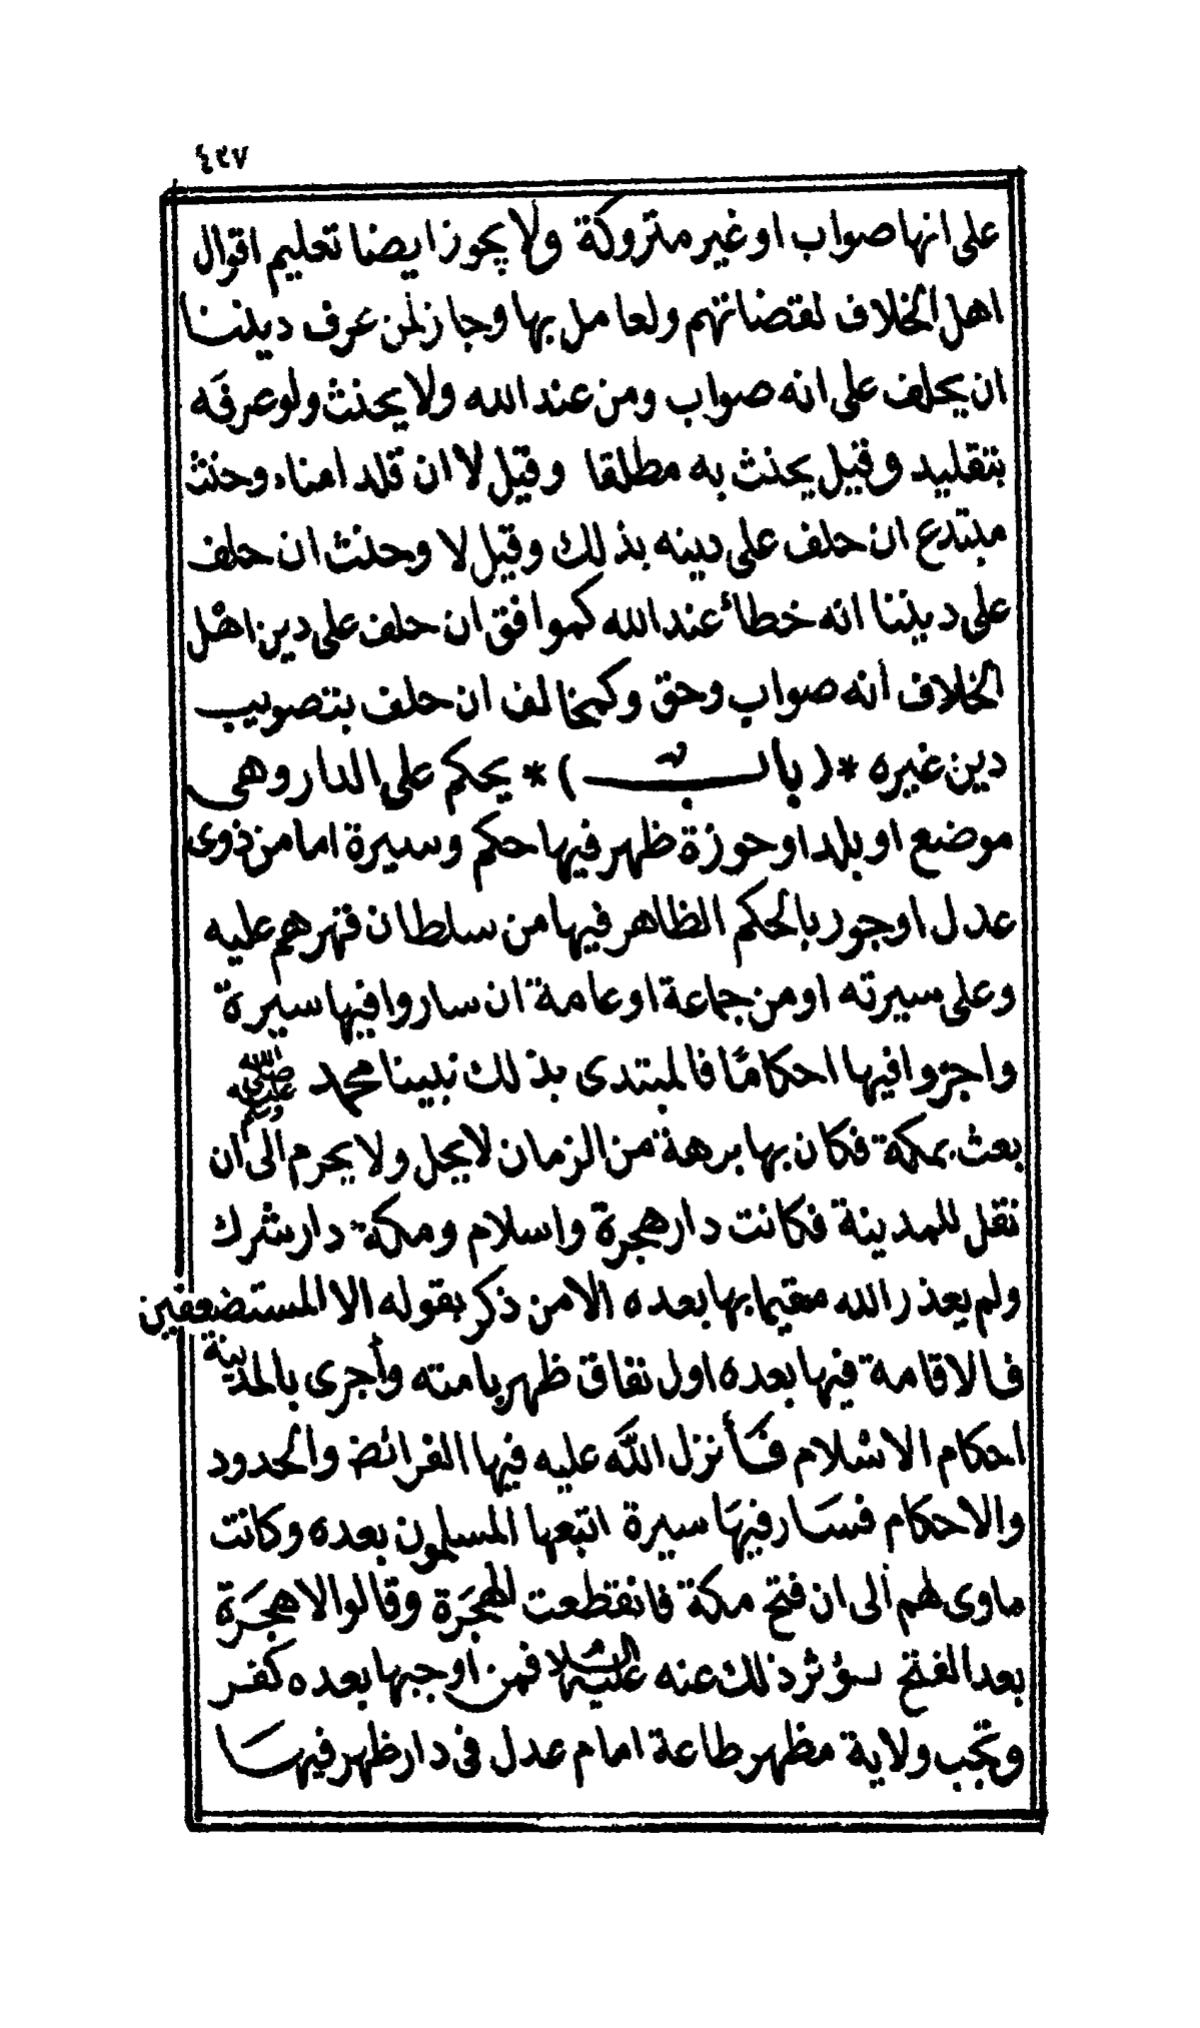 ٤٢٧
على انها صواب او غير متروكة ولا يجوز ايضا تعليم اقوال
اهل الخلاف لقضاتهم ولعامل بها وجاز لمن عرف ديننا
ان يحلف على انه صواب ومن عند الله ولا يحنث ولو عرفه
بتقليد وقيل يحنث به مطلقا وقيل لا ان قلد امناء وحنث
مبتدع ان حلف على دينه بذلك وقيل لا وحنث ان حلف
على ديننا انه خطأ عند الله كموافق ان حلف على دين اهل
الخلاف أنه صواب وحق وكمخالف ان حلف بتصويب
دين غيره *( باب )* يحكم على الدار وهى
موضع او بلد او حوزة ظهر فيها حكم وسيرة اما من ذوى
عدل او جور بالحكم الظاهر فيها من سلطان قهرهم عليه
وعلى سيرته او من جماعة او عامة ان ساروا فيها سيرة
واجروا فيها احكامًا فالمبتدى بذلك نبينا محمد صلى الله عليه وسلم
بعث بمكة فكان بها برهة من الزمان لا يحل ولا يحرم الى ان
نقل للمدينة فكانت دار هجرة واسلام ومكة دار شرك
ولم يعذر الله مقيما بها بعده الا من ذكر بقوله الا المستضعفين
فالاقامة فيها بعده اول نفاق ظهر بامته وأجرى بالمدينة
احكام الاسلام فأنزل الله عليه فيها الفرائض والحدود
والاحكام فسار فيها سيرة اتبعها المسلمون بعده وكانت
ماوى لهم الى ان فتح مكة فانقطعت الهجرة وقالوا لا هجرة
بعد الفتح يؤثر ذلك عنه عليه السلام فمن اوجبها بعده كفر
وتجب ولاية مظهر طاعة امام عدل فى دار ظهر فيها